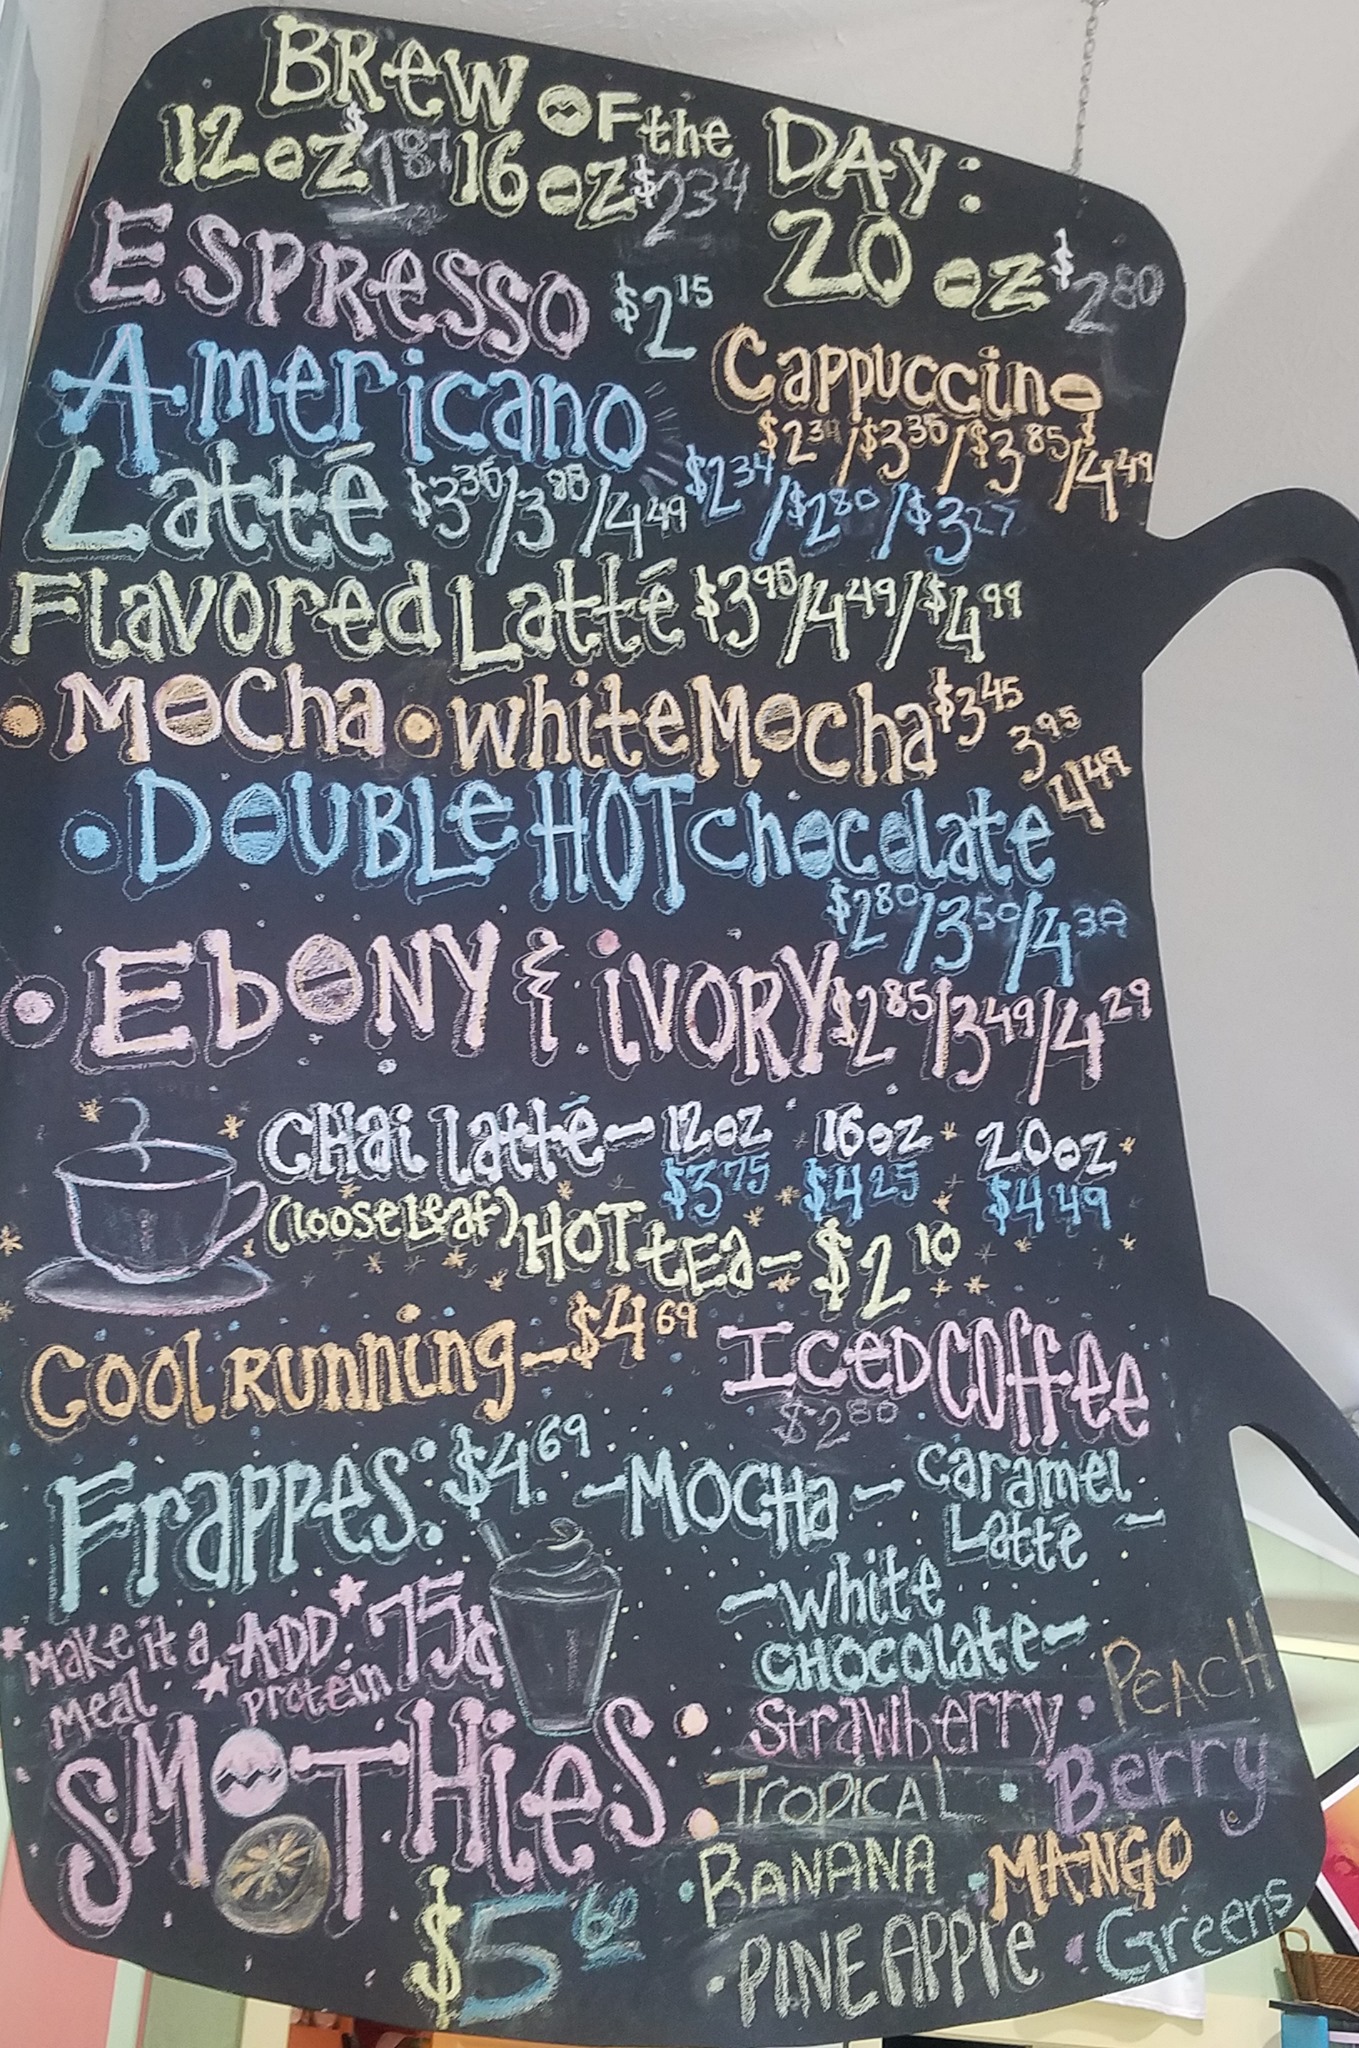 BRew OF the DAY:
12 oz $1.87 16 oz $2.34 20 oz $2.80
Espresso $2.15
Americano $2.34/$2.80/$3.27
Cappuccino
/$3.35/$3.85/4.49
Latté $3.35/3.85/4.49
Flavored Latté $3.95/4.49/$4.99
• Mocha • white Mocha $3.45
3.95
4.49
• Double HOT chocolate
$2.80/3.50/4.39
• Ebony & ivory $2.85/3.49/4.29
Chai latté - 12 oz 16 oz 20 oz
$3.75 $4.25 $4.49
(loose leaf) HOT tea - $2.10
Cool Running - $4.69
Iced Coffee
$2.80
Frappes: $4.69 - Mocha - Caramel Latté -
- White Chocolate -
*Make it a meal *ADD* protein 75¢
Smothies • Strawberry • Peach
• Tropical • Berry
• Banana • Mango
• Pineapple • Greens
$5.60